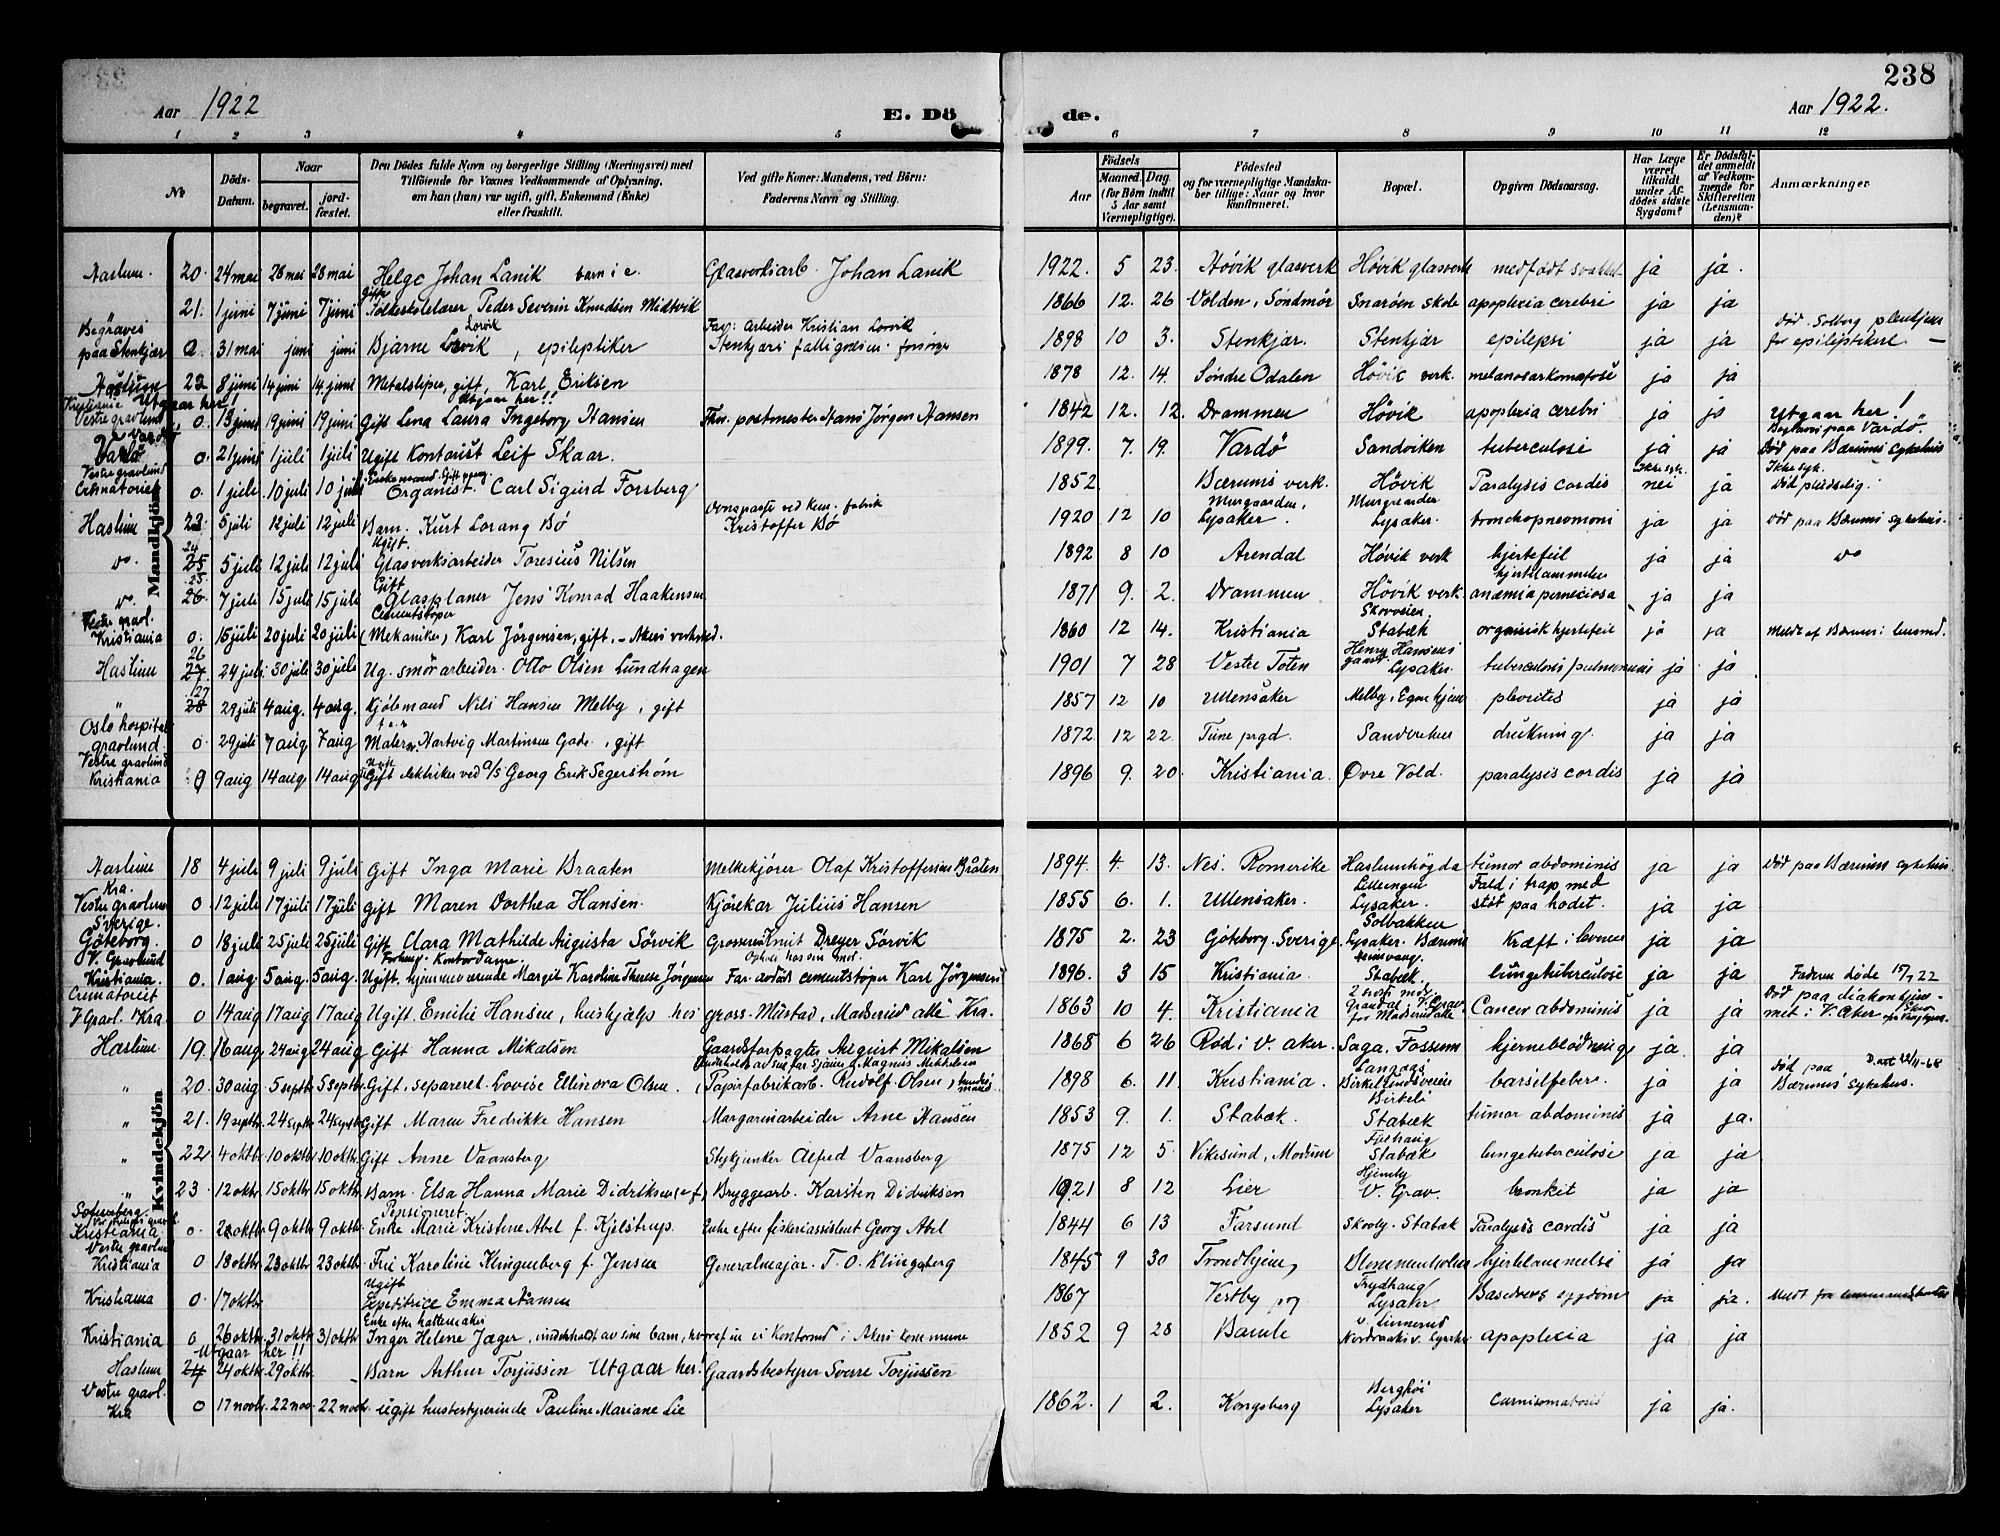 238
Aar 1922
E. Dö
de.
Aar 1922.
1 2 3 4 5 6 7 8 9 10 11 12
No
Döds-Datum.
Naar
begravet.
jord-fæstet.
Den Dödes fulde Navn og borgerlige Stilling (Næringsvei) med
Tilföiende for Voxnes Vedkommende af Oplysning,
om han (hun) var ugift, gift, Enkemand (Enke)
eller fraskilt.
Ved gifte Koner: Mandens, ved Börn:
Faderens Navn og Stilling.
Födsels
Aar
Maaned. Dag.
(for Börn indtil
5 Aar samt
Værnepligtige).
Födested
og for værnepligtige Mandska-
ber tillige: Naar og hvor
konfirmeret.
Bopæl.
Opgiven Dödsaarsag.
Har Læge
været
tilkaldt
under Af-
dödes sidste
Sygdom?
Er Dödsfal-
det anmeldt
af Vedkom-
mende for
Skifteretten
(Lensman-
den)?
Anmærkninger
Mandkjön
Haslum. 20. 24 mai 28 mai 28 mai Helge Johan Lanik barn i e. Glasverksarb. Johan Lanik 1922 5 23. Hövik glasverk Hövik glasverk medfödt svakhet ja ja.
" 21. 1 juni 7 juni 7 juni Gift Folkeskolelærer Peder Severin Knudsen Midtvik 1866 12. 26 Volden, Söndmör Snaröen skole apoplexia cerebri ja ja
Begraves paa Stenkjær 0. 31 mai juni juni Bjarne Lorvik, epileptiker Far: Arbeider Kristian Lorvik Stenkjærs fattigvæsen forsörge 1898 10 3. Stenkjær. Stenkjær epilepsi ja ja Död Solberg pleiehjem for epileptikere
Haslum 22 8 juni 14 juni 14 juni Metalsliper, gift, Karl Eriksen 1878 12. 14. Söndre Odalen Hövik verk. melanosarkomatose ja ja
Kristiania Vestre gravlund Utgaar her! 0. 13 juni 19 juni 19 juni Gift Lena Laura Ingeborg Hansen Utgaar her!! Fhv. postmester Hans Jörgen Hansen 1842 12. 12. Drammen Hövik apoplexia cerebri ja ja Utgaar her!
Vardö 0. 21 juni 1 juli 1 juli Ugift Kontorist Leif Skaar. 1899. 7. 19. Vardö Sandviken tuberculose ja ja Begraves paa Vardö. Död paa Bærums sykehus
Vestre gravlund Crematoriet 0. 1 juli 10 juli 10 juli Enkemand. Gift gang. Organist. Carl Sigurd Forsberg 1852 Bærums verk. Hövik Paralysis cordis Ikke syk. nei ja Ikke syk. Död pludselig.
Haslum 23. 5 juli 12 juli 12 juli Barn. Kurt Lorang Bö Kristoffer Bö 1920 12 10 Murgaarden, Lysaker. Murgaarden Lysaker. bronchopneumoni ja ja Död paa Bærums sykehus.
do. 24 25 5 juli 12 juli 12 juli Ugift. Glasverksarbeider Toresius Nilsen 1892 8 10 Arendal Hövik verk hjertefeil ja ja do
do. 25 26. 7 juli 15 juli 15 juli Gift Glasplaner Jens Konrad Haakensen 1871 9. 2. Drammen Hövik verk. hjertelammelse anæmia perneciosa ja ja
Vestre gravl. Kristiania 0. 15 juli 20 juli 20 juli Cementstöper (Mekaniker) Karl Jörgensen, gift. - Akers verksted. 1860 12 14. Kristiania Skovveien Stabæk organisk hjertefeil ja ja
Haslum 26 27 24 juli 30 juli 30 juli Ug. smörarbeider. Otto Olsen Lundhagen 1901 7 28 Vestre Toten Henry Hansens gaard Lysaker. tuberculosis pulmonum ja ja
" 27 28 29 juli 4 aug. 4 aug. Kjöbmand Nils Hansen Melby, gift 1857 12 10 Ullensaker Melby, Egne hjem plevrites ja ja
Oslo hospital gravlund. 0 29 juli 7 aug 7 aug Maler Hartvig Martinsen Gade, gift 1872 12 22. Tune prgd. Sandviken drukning ja ja
Vestre gravlund Kristiania 0 9 aug 14 aug 14 aug Gift elektriker ved a/s Georg Erik Segerström 1896 9. 20 Kristiania. Övre Vold. paralysis cordis ja ja
Kvindekjön
Haslum 18 4 juli 9 juli 9 juli Gift Inga Marie Braaten Melkekjörer Olaf Kristoffersen Bråten 1894 4. 13. Nes. Romerike Haslumhögda tumor abdominis ja ja Död paa Bærums sykehus.
Kra. Vestre gravlund 0 12 juli 17 juli 17 juli Gift Maren Dorthea Hansen. Kjörekar Julius Hansen 1855 6. 1. Ullensaker. Lilleengen Lysaker. Fald i trap med stöt paa hodet. ja ja
Sverige. Göteborg. 0 18 juli 25 juli 25 juli Gift Clara Mathilde Augusta Sörvik Grosserer Knut Dreyer Sörvik 1875 2. 23 Göteborg. Sverige. Solbakken Lysaker. Bærum Kræft i leveren ja ja
V. Gravlund Kristiania. Crematoriet 0. 1 aug 5 aug. 5 aug. Ugift. hjemmeværende Margit Karoline Therese Jörgensen Far. cementstöper Karl Jörgensen 1896. 3 15 Kristiania. Stabæk lungetuberculose ja ja Faderen döde 15/7 22
V. Gravl. Kra. 0 14 aug 17 aug 17 aug Ugift Emilie Hansen, hushjælp hos gross. Mustad, Madserud alle Kra. 1863 10 4. Kristiania Cancer abdominis ja ja Död paa diakonhjem-met i V. Aker
Haslum 19. 16 aug. 24 aug 24 aug. Gift Hanna Mikalsen Gaardsforpagter August Mikalsen 1868 6 26 Röd i V. aker. Saga. Fossum hjerneblödning ja ja
" 20. 30 aug 5 septb 5 septb Gift, separeret. Lovise Ellinora Olsen Papirfabrikarb. Rudolf Olsen 1898 6. 11. Kristiania. Birkelundsveien barselfeber. ja ja Död paa Bærums sykehus.
" 21. 19 septb 24 septb 24 septb Gift Maren Fredrikke Hansen Margarinarbeider Arne Hansen 1853 9. 1. Stabæk. Birkeli Stabæk tumor abdominis ja ja.
" 22 4 oktb. 10 oktb. 10 oktb. Gift Anne Vaansberg Stykjunker Alfred Vaansberg 1875 12 5. Vikesund, Modum Furuhaug Stabæk lungetuberculose ja ja
" 23. 12 oktb 15 oktb. 15 oktb. Barn. Elsa Hanna Marie Didriksen Bryggearb. Karsten Didriksen 1921 8 12 Lier Hjemly V. Grav. bronkit ja ja
Kristiania 0. 2 oktb 9 oktb. 9 oktb. Pensioneret. Enke Marie Kristine Abel f. Kjelstrup. Enke efter fiskeriassistent Georg Abel 1844 6 13 Farsund Skovly. Stabæk Paralysis cordis ja ja
Vestre gravlund Kristiania 0 18 oktb. 23 oktb. 23 oktb. Fru Karoline Klingenberg f. Jensen Generalmajor. T. O. Klingenberg 1845 9 30 Trondhjem Blommenholm hjertelammelse ja ja
Kristiania 0. 17 oktb. Ugift Expeditrice Emma Hansen 1867 Vestby prg Frydhaug Lysaker Basedows sygdom ja ja. Meldt fra
Kristiania 0 26 oktb. 31 oktb. 31 oktb. Enke efter hattemaker Inger Helene Jæger, underholdt av sine barn, 1852 9 28 Bamle apoplexia ja ja
Utgaar her!!
Haslum 24 24 oktb. 29 oktb. Barn Arthur Torjussen Utgaar her! Gaardsbestyrer Sverre Torjussen
Vestre gravl. Kra 0 17 novb. 22 nov. 22 novb. ugift husbestyrerinde Pauline Mariane Lie 1862. 1 2. Kongsberg Berghöi Lysaker carcinomatosis ja ja.